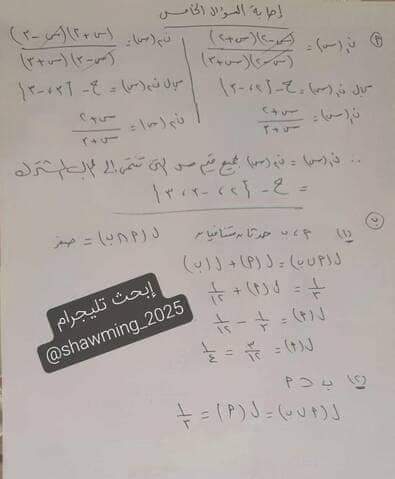 إجابة السؤال الخامس
(أ) ن₁(س) = (س-٢)(س+٢) / (س-٢)(س+٣)
مجال ن₁(س) = ح - {٢، -٣}
ن₁(س) = س+٢ / س+٣
ن₂(س) = (س-٣)(س+٢) / (س-٣)(س+٣)
مجال ن₂(س) = ح - {٣، -٣}
ن₂(س) = س+٢ / س+٣
∴ ن₁(س) = ن₂(س) لجميع قيم س التى تنتمى إلى المجال المشترك
= ح - {٢، -٣، ٣}
ب
(١) ‏P، ب حدثان متنافيان ل(P∩ب) = صفر
ل(P∪ب) = ل(P) + ل(ب)
١/٣ = ل(P) + ١/١٢
ل(P) = ١/٣ - ١/١٢
ل(P) = ٣/١٢ = ١/٤
(٢) ب ⊂ P
ل(P∪ب) = ل(P) = ١/٣
إبحث تليجرام
@shawming_2025